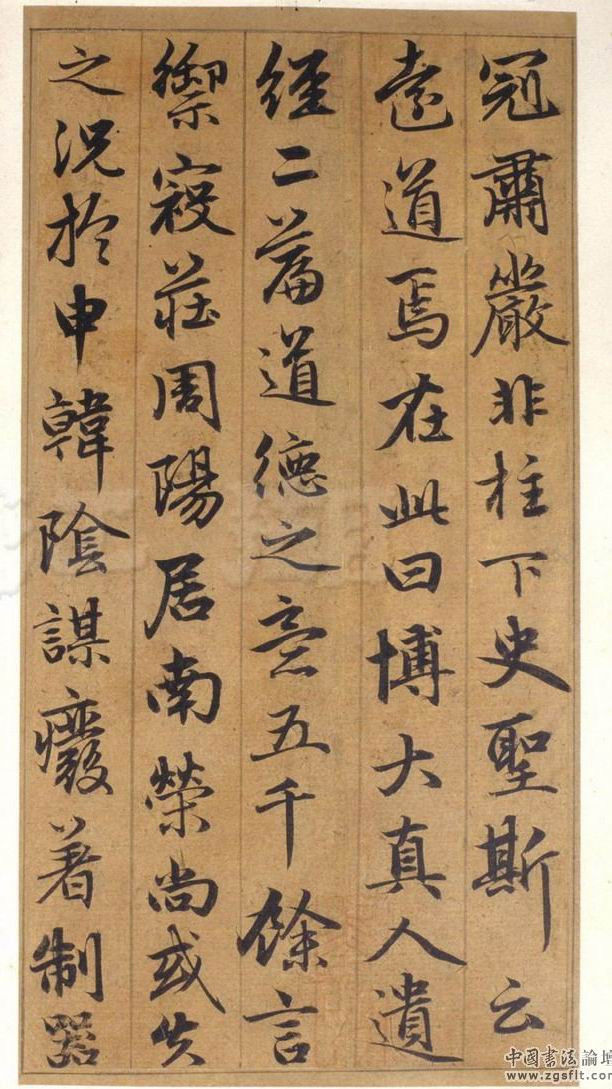 冠肅嚴非柱下史聖斯云
遠道焉在此曰博大真人遺
經二篇道德之意五千餘言
禦寇莊周陽居南榮尚或失
之況於申韓陰謀廢著制器
中国書法論壇
www.zgsflt.com